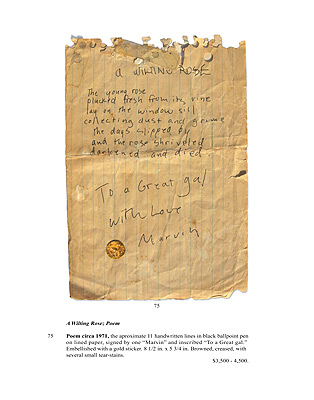 A WILTING ROSE
The young rose
plucked fresh from its vine
lay on the window sill
collecting dust and grime
the days slipped by
and the rose shriveled
darkened and died.
To a Great gal
With Love
Marvin
75
A Wilting Rose; Poem
75 Poem circa 1971, the aproximate 11 handwritten lines in black ballpoint pen
on lined paper, signed by one “Marvin” and inscribed “To a Great gal.”
Embellished with a gold sticker. 8 1/2 in. x 5 3/4 in. Browned, creased, with
several small tear-stains.
$3,500 - 4,500.